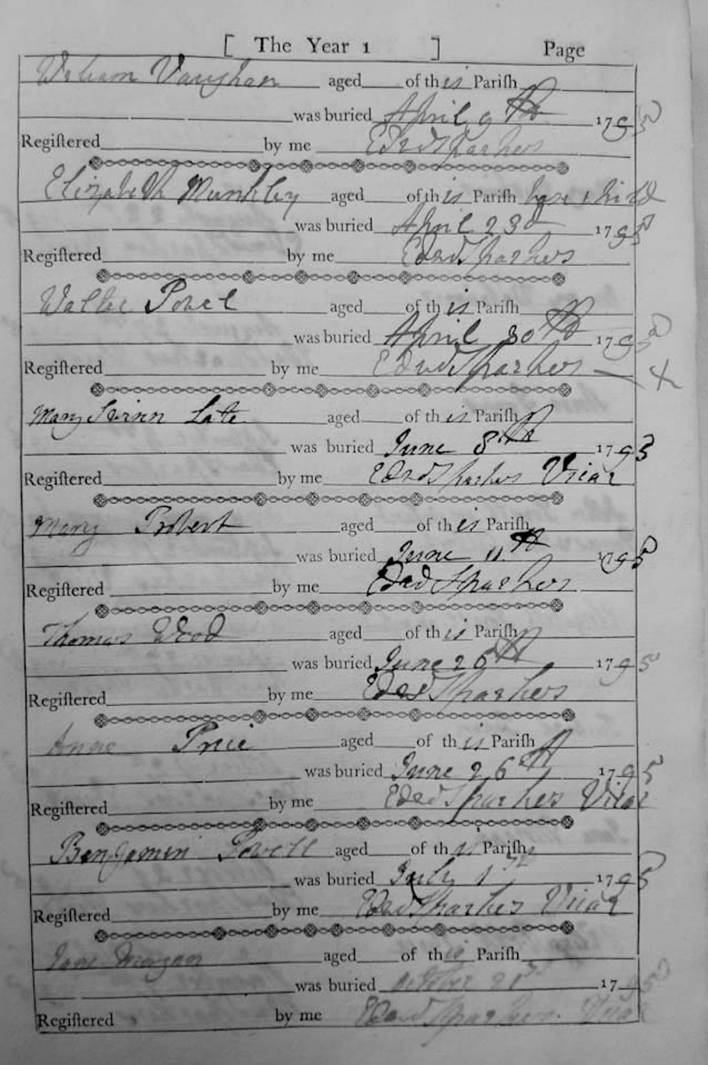 [ The Year 1 ] Page
William Vaughan aged of this Pariſh
was buried April 9th 1795
Regiſtered by me Edwd Sparkes
Elizabeth Munkley aged of this Pariſh base child
was buried April 23d 1795
Regiſtered by me Edwd Sparkes
Walter Powel aged of this Pariſh
was buried April 30th 1795
Regiſtered by me Edwd Sparkes
Mary aged of this Pariſh
was buried June 8th 1795
Regiſtered by me Edwd Sparkes Vicar
Mary Probert aged of this Pariſh
was buried June 11th 1795
Regiſtered by me Edwd Sparkes
Thomas Wood aged of this Pariſh
was buried June 26th 1795
Regiſtered by me Edwd Sparkes
Anne Price aged of this Pariſh
was buried June 26th 1795
Regiſtered by me Edwd Sparkes Vicar
Benjamin Powell aged of this Pariſh
was buried July 1st 1795
Regiſtered by me Edwd Sparkes Vicar
Jane Morgan aged of this Pariſh
was buried October 21st 1795
Regiſtered by me Edwd Sparkes Vicar